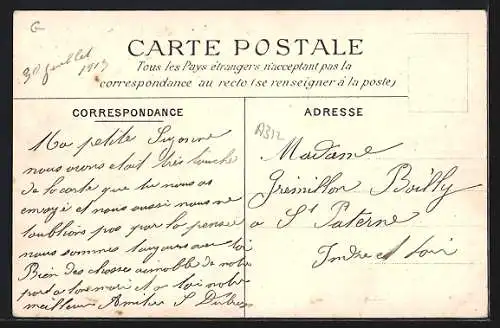 G
30 juillet
1913
CARTE POSTALE
Tous les Pays étrangers n'acceptant pas la
correspondance au recto (se renseigner à la poste)
CORRESPONDANCE
Ma petite Suzanne
nous avons etait très touché
de la carte que tu nous as
envoyé et nous aussi nous ne
t'oublions pas par la pensé
nous sommes toujours avec toi
Bien des chose aimable de notre
part a ton mari et a toi notre
meilleur Amitié S
ADRESSE
A312
Madame
Grémillon Boilly
a St Paterne
Indre et Loir